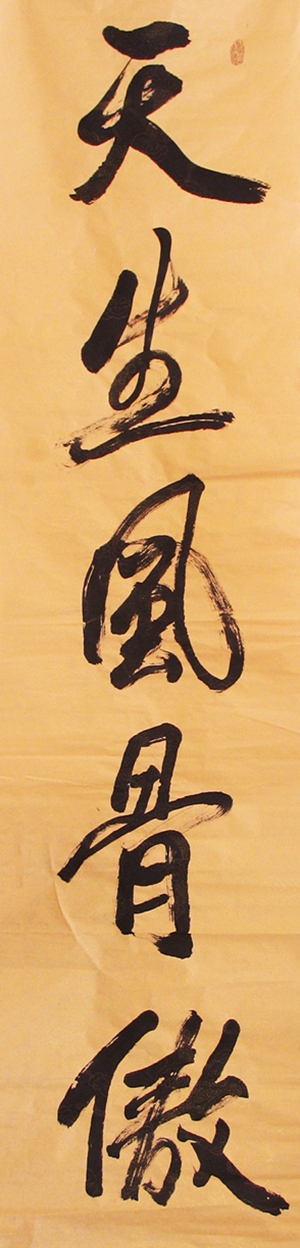 天生風骨傲